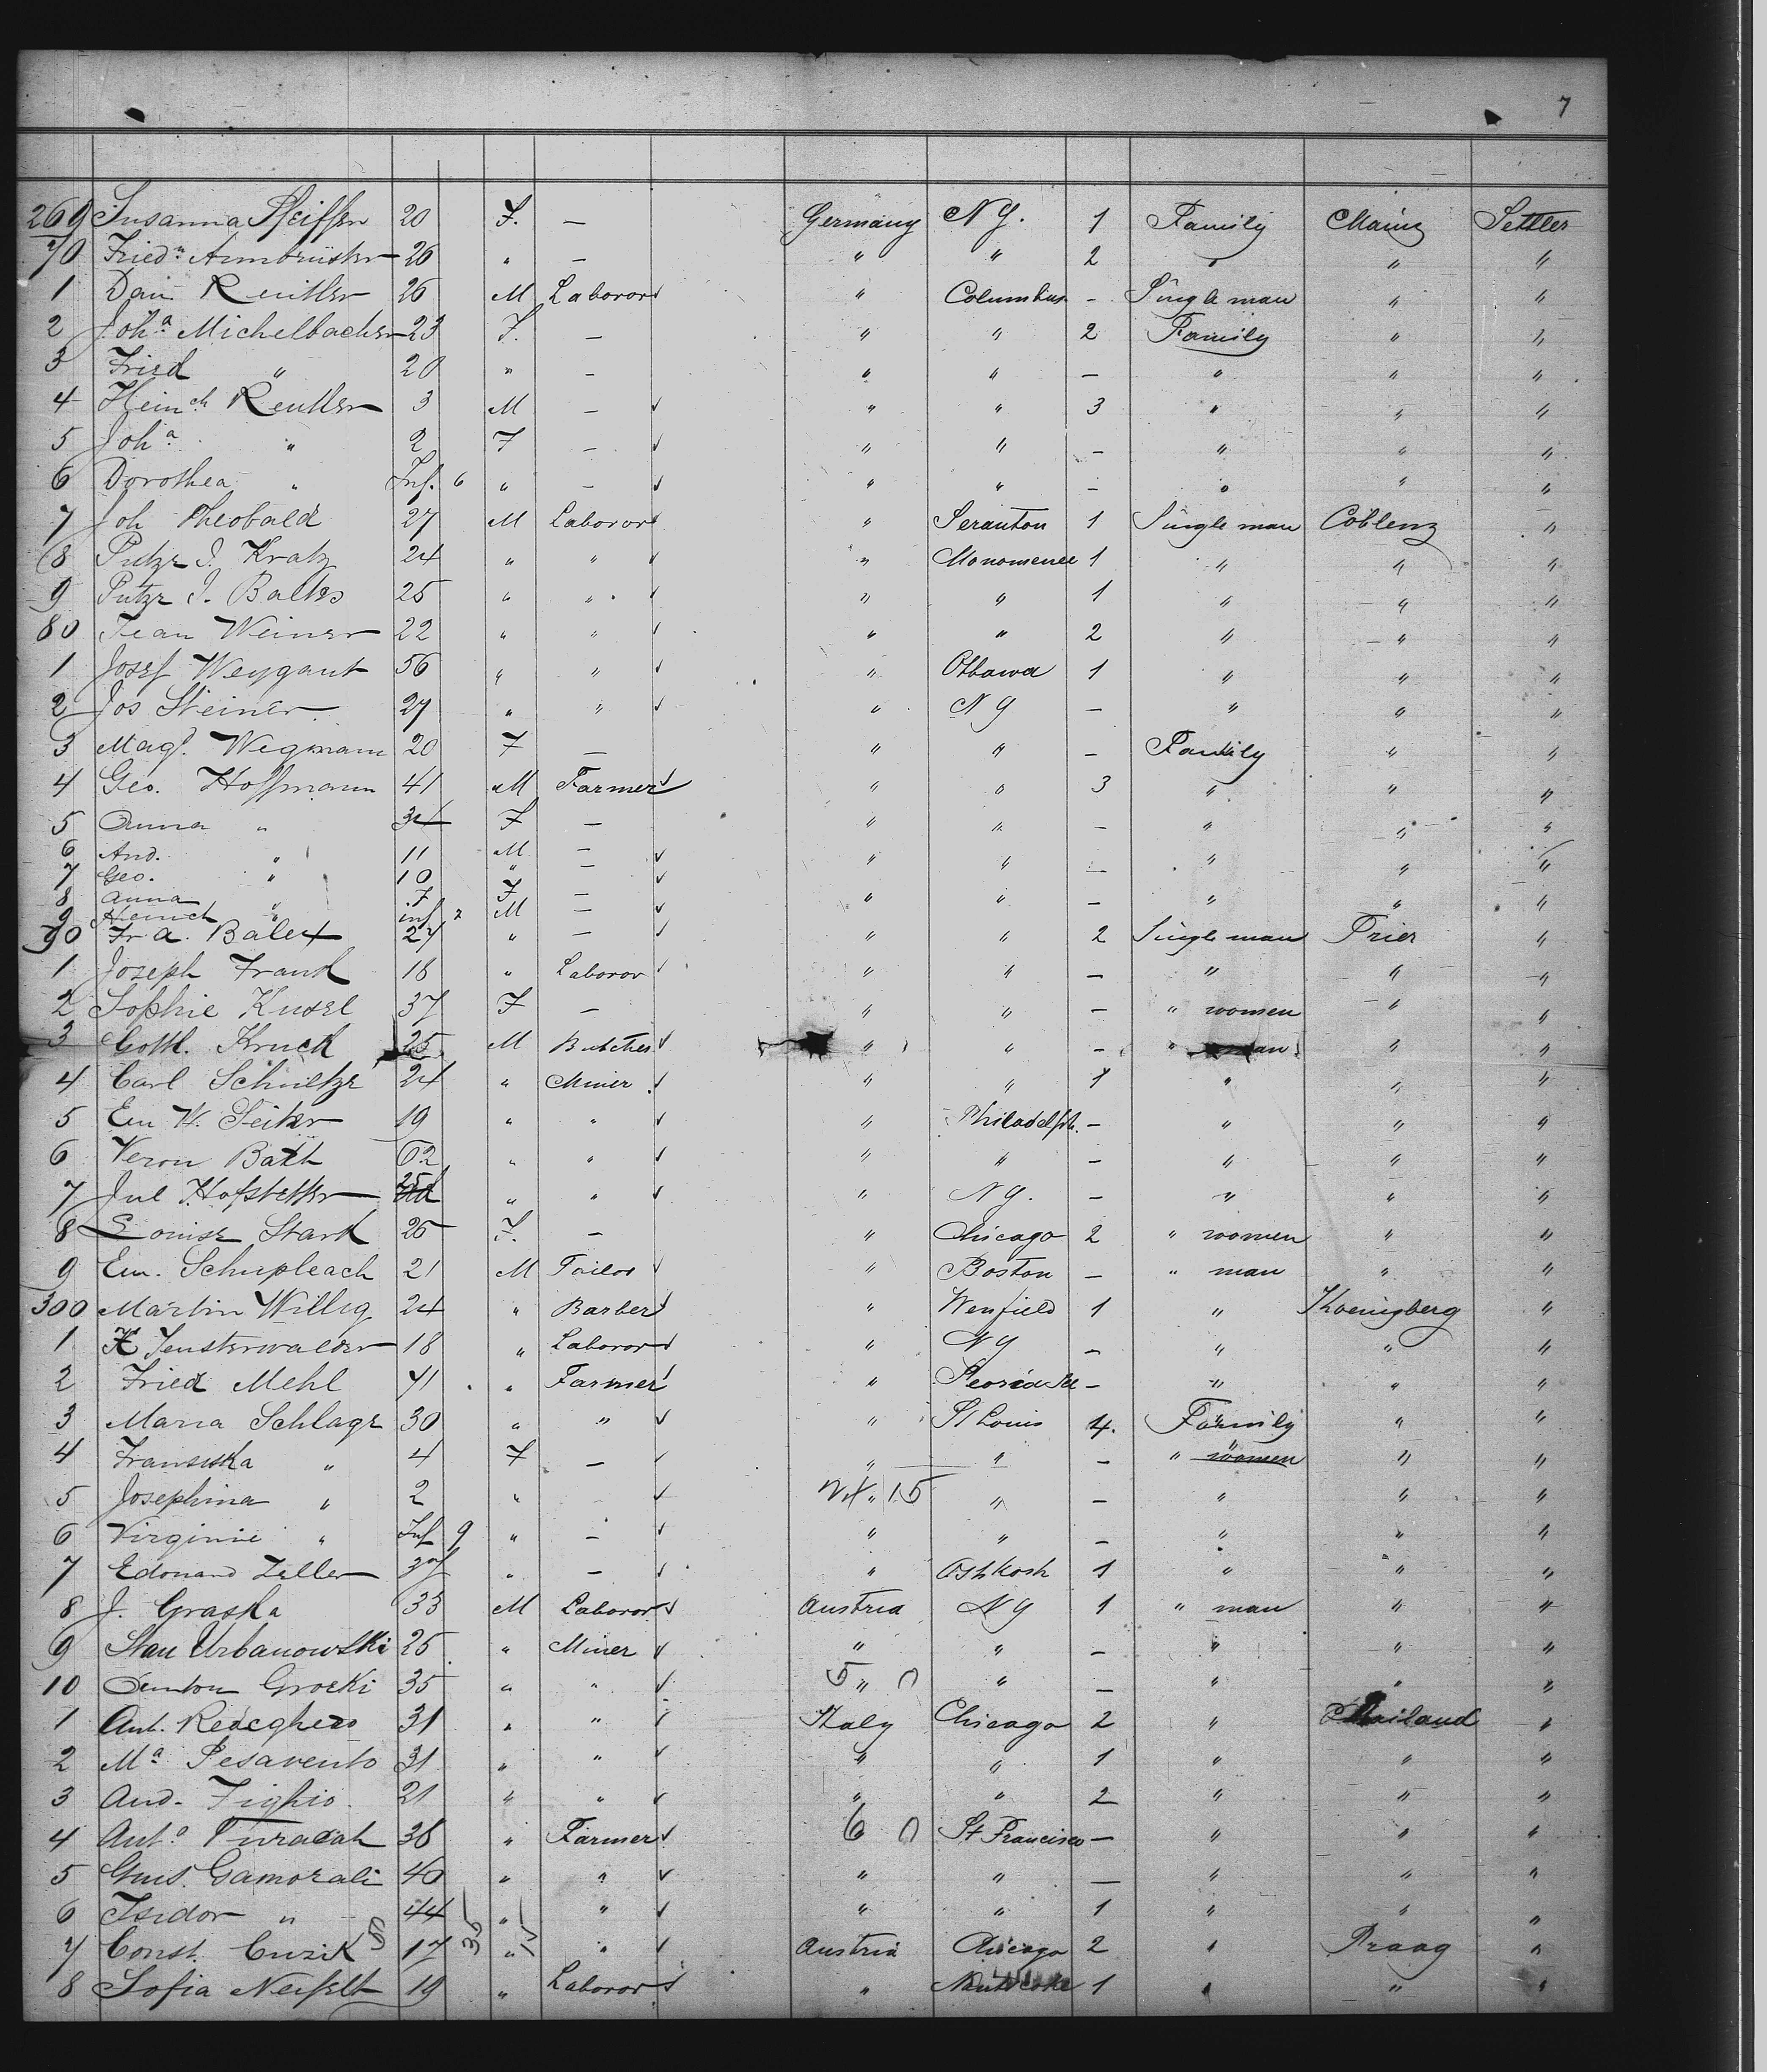 7
269 Susanna Pfeiffer 20 F. — Germany N Y. 1 Family Mainz Settler
70 Friedᵃ Armbrüster 26 " — " " 2 " " "
1 Dan Reutler 26 M Laboror " Columbus - Single man " "
2 Johᵃ Michelbacher 23 F. — " " 2 Family " "
3 Fried " 20 " — " " — " " "
4 Heinch Reutler 3 M — " " 3 " " "
5 Johᵃ " 2 F — " " — " " "
6 Dorothea " Inf. 6 " — " " — " " "
7 Joh Theobald 27 M Laboror " Scranton 1 Single man Coblenz "
8 Peter J. Kratz 24 " " " Monomenee 1 " " "
9 Peter J. Baltes 25 " " " " 1 " " "
80 Jean Weiner 22 " " " " 2 " " "
1 Josef Weygant 56 " " " Ottawa 1 " " "
2 Jos Steiner 27 " " " N Y — " " "
3 Magd. Wegmann 20 F — " " — Family " "
4 Geo. Hoffmann 41 M Farmer " " 3 " " "
5 Anna " 34 F — " " — " " "
6 And. " 11 M — " " — " " "
7 Geo. " 10 " —
8 Anna " 7 F — " " — " " "
9 Heinch " inf 2 M —
90 Fr. A. Balex 27 " — " " 2 Single man Trier "
1 Joseph Frank 18 " Laboror " " — " " "
2 Sophie Kusel 37 F — " " — " women " "
3 Gottl. Kruck 25 M Butcher " " — " man " "
4 Carl Schultze 24 " Miner " " 1 " " "
5 Em H. Seiter 19 " " " Philadelph. — " " "
6 Veron Bath 62 " " " " — " " "
7 Jul Hofstetter 25 " " " N Y. — " " "
8 Louise Stark 25 F. — " Chicago 2 " women " "
9 Em. Schupleach 21 M Tailor " Boston — " man " "
300 Martin Willig 24 " Barber " Wenfield 1 " Koenigsberg "
1 K Fensterwalder 18 " Laboror " N Y — " " "
2 Fried Mehl 41 " Farmer " Peoria Ill — " " "
3 Maria Schlage 30 " " " St Louis 4. Family " "
4 Fransiska " 4 F — " " — " women " "
5 Josephina " 2 " - " 15 " — " " "
6 Virginie " Inf 9 " — " " — " " "
7 Edouard Zeller 37 " — " Oshkosh 1 " " "
8 J. Graska 33 M Laboror Austria N Y 1 " man " "
9 Stan Urbanowski 25 " Miner " " — " " "
10 Grocki 35 " " 5 " 0 " — " " "
1 Ant. Redeghero 31 " " Italy Chicago 2 " Mailand "
2 Mᵃ Pesavento 31 " " " " 1 " " "
3 And. Fighio 21 " " " " 2 " " "
4 Antᵒ Turacah 38 " Farmer 6 " 0 St Francisco — " " "
5 Gius. Gamorali 40 " " " " — " " "
6 Isidor " 44 " " " " 1 " " "
7 Const. Cuzik 17 35 " 15 " Austria Chicago 2 " Praag "
8 Sofia Neifelt 19 " Laboror " Nanticoke 1 " " "